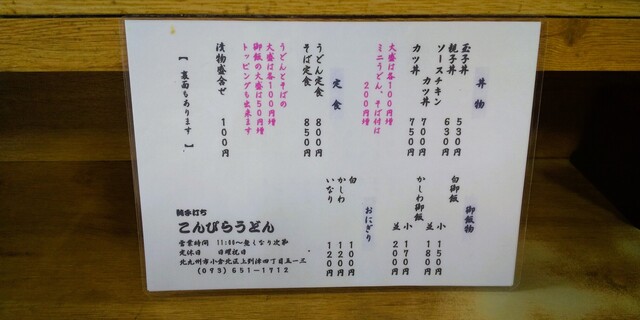 丼物
玉子丼 530円
親子丼 630円
ソースチキンカツ丼 700円
カツ丼 750円
大盛は各100円増
ミニうどん、そば付は200円増
定食
うどん定食 800円
そば定食 850円
うどんとそばの
大盛は各100円増
御飯の大盛は50円増
トッピングも出来ます
漬物盛合せ 100円
【裏面もあります】
御飯物
白御飯 小 150円
並 180円
かしわ御飯 小 170円
並 210円
おにぎり
白 100円
かしわ 120円
いなり 120円
純手打ち
こんぴらうどん
営業時間 11:00~麺しなり次第
定休日 日曜祝日
北九州市小倉北区上到津四丁目五ー三
(093)651-1712